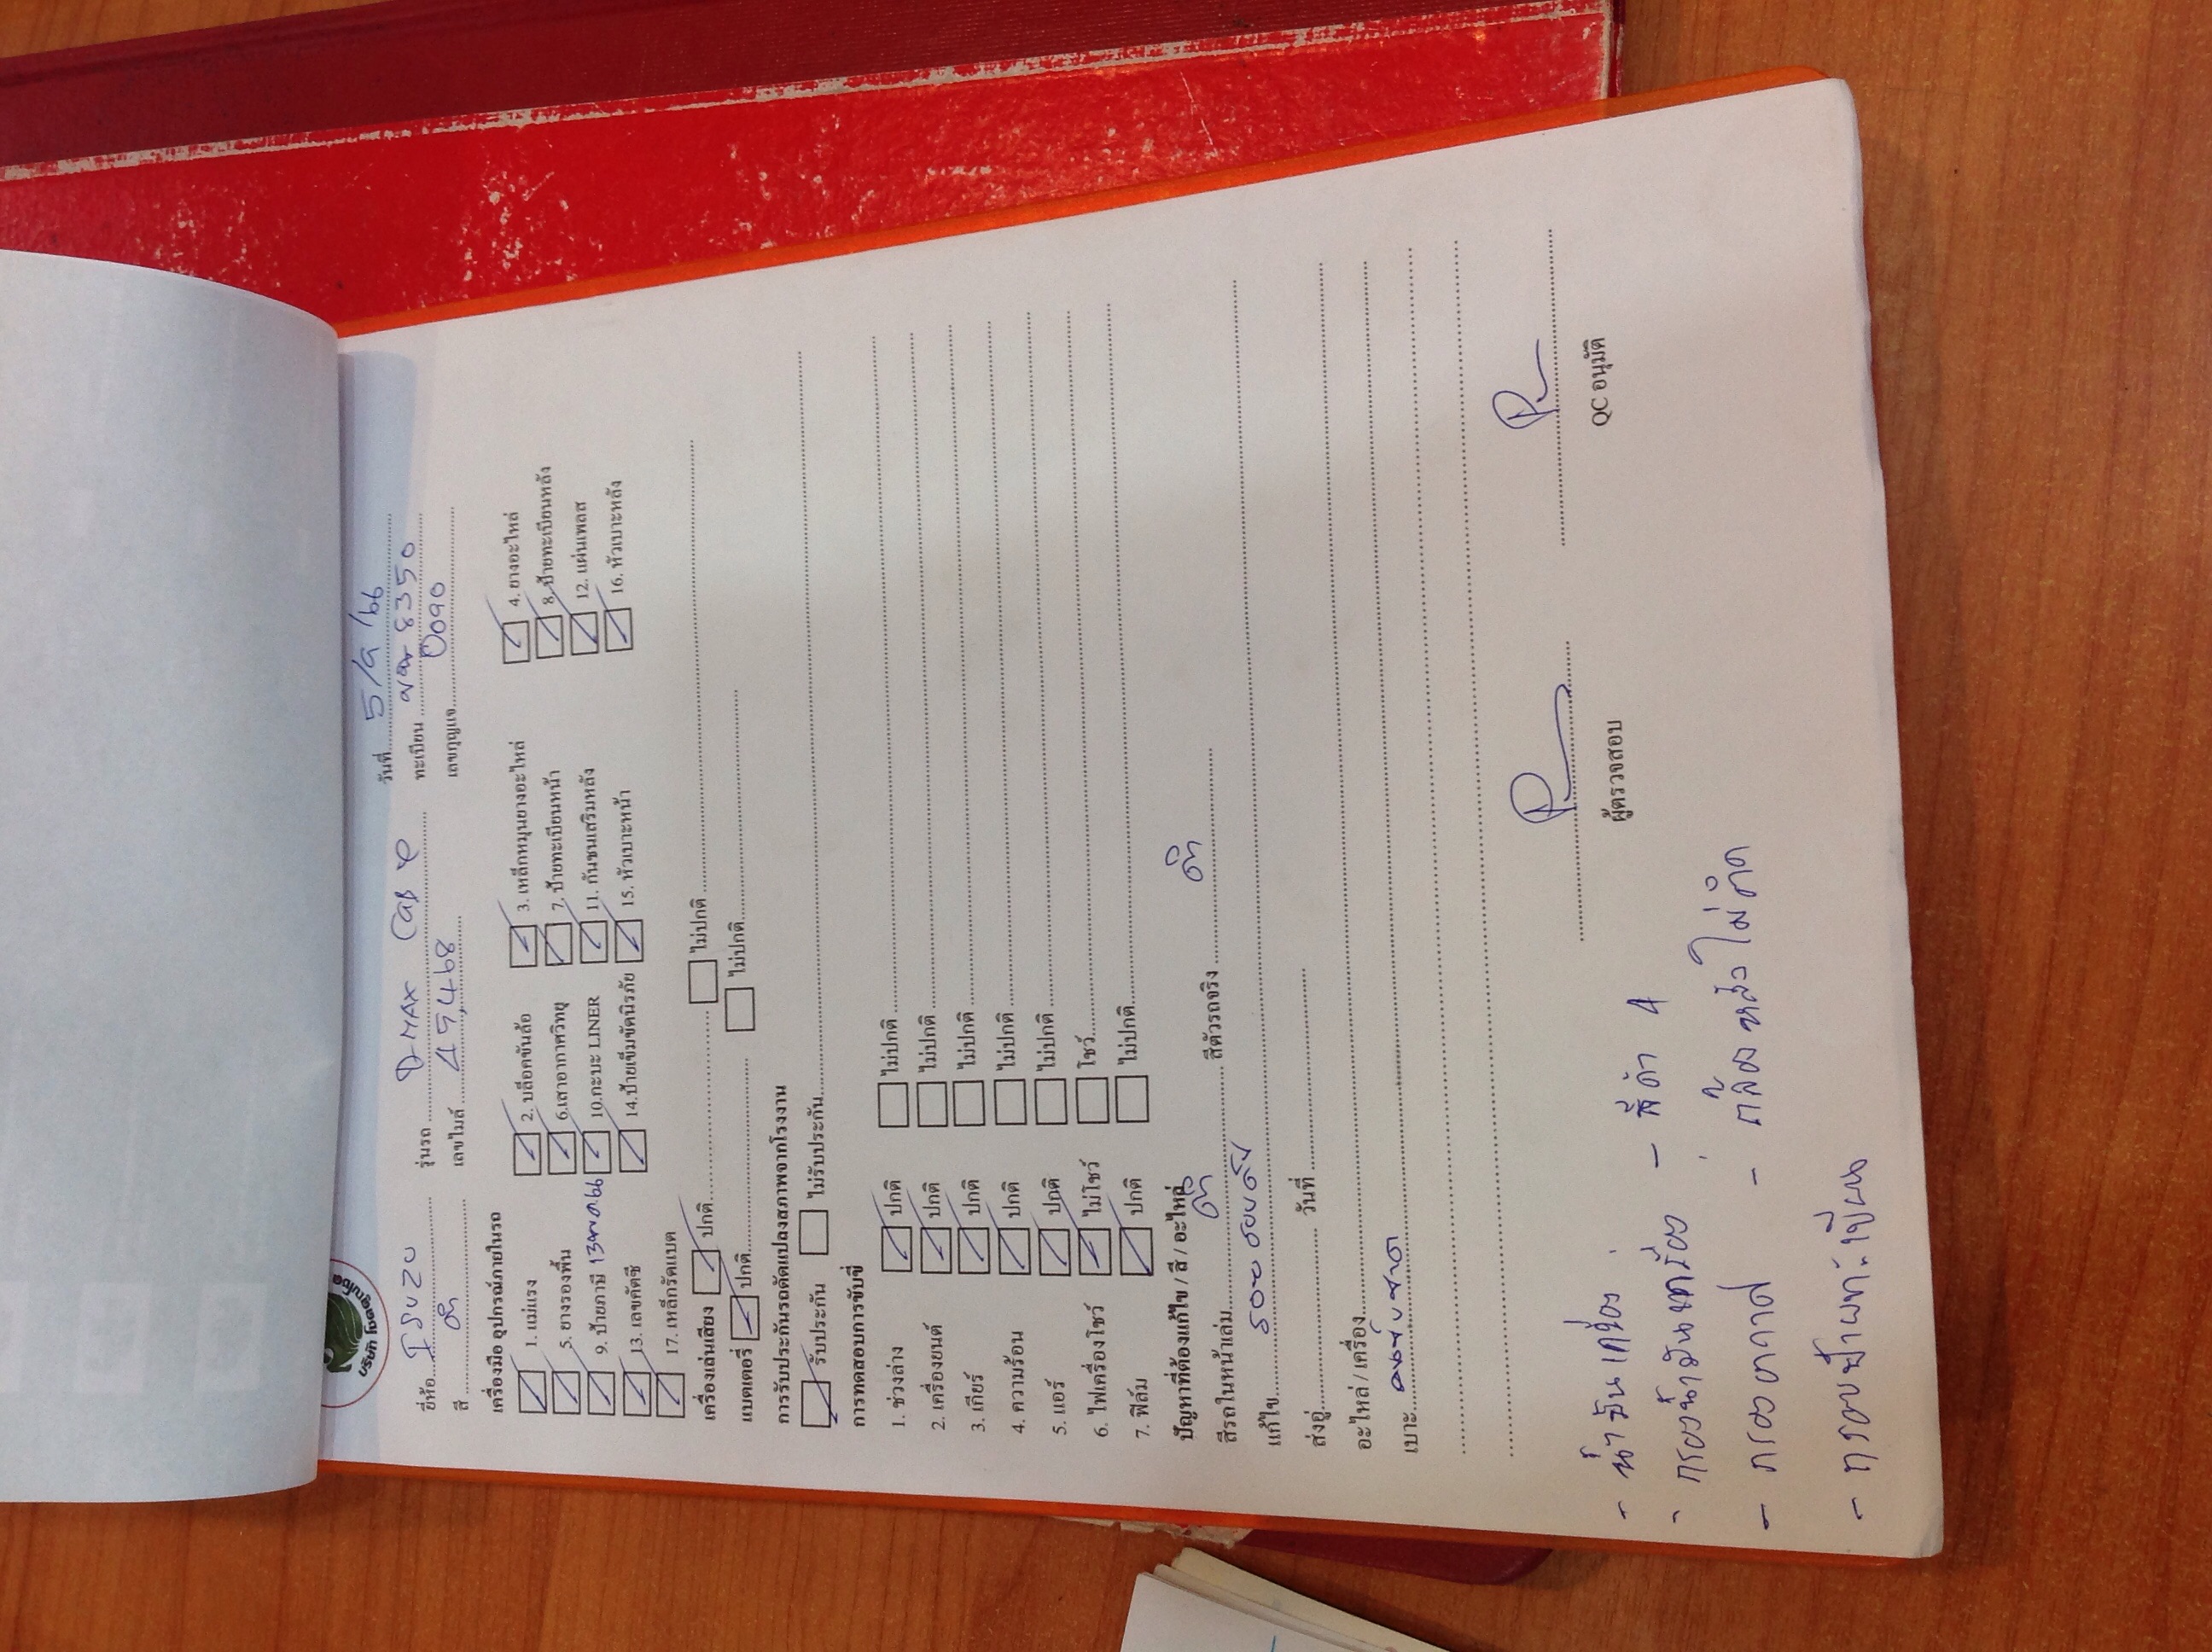 บริษัท โชคอนุกูล
วันที่ 5/9/66
ยี่ห้อ ISUZU รุ่นรถ D-MAX CAB 4 ทะเบียน 8350
สี ดำ เลขไมล์ 45,468 เลขกุญแจ 0090
เครื่องมือ อุปกรณ์ภายในรถ
1. แม่แรง 2. บล็อคขันล้อ 3. เหล็กหมุนยางอะไหล่ 4. ยางอะไหล่
5. ยางรองพื้น 6.เสาอากาศวิทยุ 7. ป้ายทะเบียนหน้า 8.ป้ายทะเบียนหลัง
9. ป้ายภาษี 10.กะบะ LINER 11. กันชนเสริมหลัง 12. แผ่นเพลส
13. เลขคัดซี 14.ป้ายเข็มขัดนิรภัย 15. หัวเบาะหน้า 16. หัวเบาะหลัง
17. เหล็กรัดแบต
เครื่องเล่นเสียง ปกติ ไม่ปกติ
แบตเตอรี่ ปกติ ไม่ปกติ
การรับประกันรถดัดแปลงสภาพจากโรงงาน
รับประกัน ไม่รับประกัน
การทดสอบการขับขี่
1. ช่วงล่าง ปกติ ไม่ปกติ
2. เครื่องยนต์ ปกติ ไม่ปกติ
3. เกียร์ ปกติ ไม่ปกติ
4. ความร้อน ปกติ ไม่ปกติ
5. แอร์ ปกติ ไม่ปกติ
6. ไฟเครื่องโชว์ ไม่โชว์ โชว์
7. ฟิล์ม ปกติ ไม่ปกติ
ปัญหาที่ต้องแก้ไข / สี / อะไหล่
สีรถในหน้าเล่ม ดำ สีตัวรถจริง ดำ
แก้ไข รอบคัน
ส่งอู่ วันที่
อะไหล่ / เครื่อง
เบาะ
ผู้ตรวจสอบ QC อนุมัติ
- น้ำมันเครื่อง - สีดำ 4
- กรองน้ำมันเครื่อง - กล้องหลังไม่ติด
- กรองอากาศ
- กรอบป้ายทะเบียน